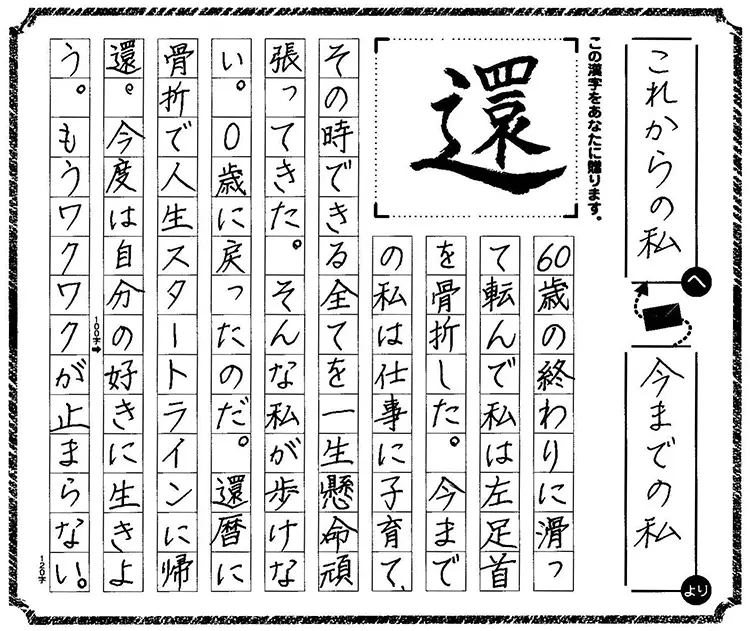 これからの私
へ
今までの私
より
この漢字をあなたに贈ります。
還
60歳の終わりに滑っ
て転んで私は左足首
を骨折した。今まで
の私は仕事に子育て、
その時できる全てを一生懸命頑
張ってきた。そんな私が歩けな
い。0歳に戻ったのだ。還暦に
骨折で人生スタートラインに帰
還。今度は自分の好きに生きよ
100字
う。もうワクワクが止まらない。
120字